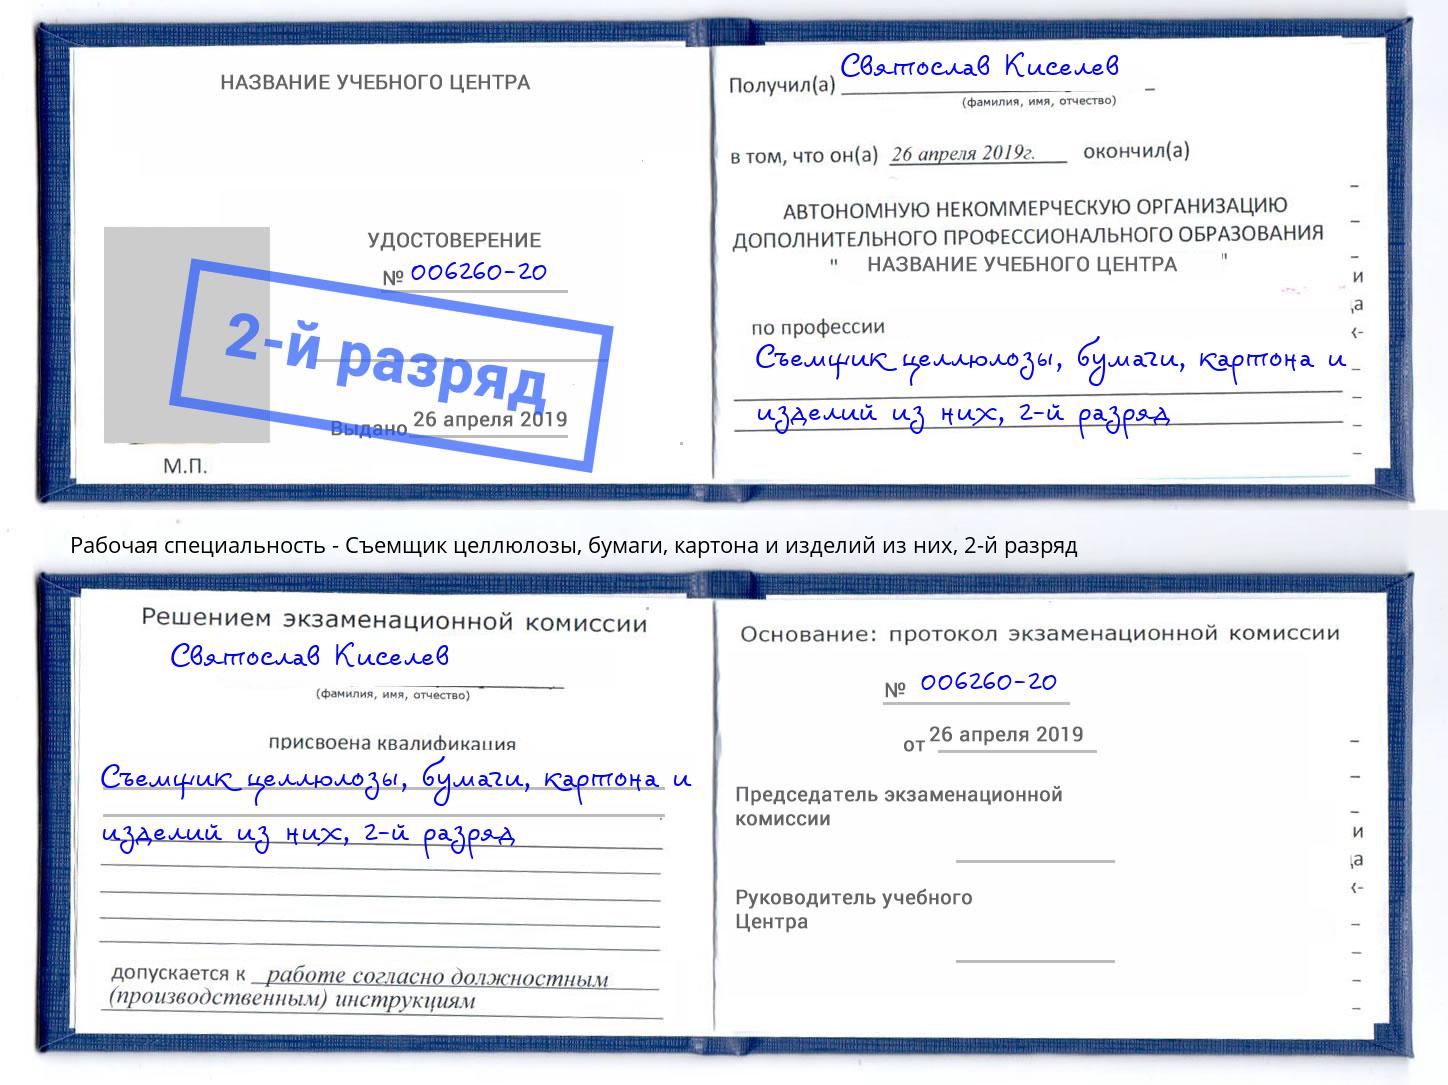 НАЗВАНИЕ УЧЕБНОГО ЦЕНТРА
УДОСТОВЕРЕНИЕ
№ 006260-20
2-й разряд
Выдано 26 апреля 2019
М.П.
Получил(а) Святослав Киселев
(фамилия, имя, отчество)
в том, что он(а) 26 апреля 2019г. окончил(а)
АВТОНОМНУЮ НЕКОММЕРЧЕСКУЮ ОРГАНИЗАЦИЮ
ДОПОЛНИТЕЛЬНОГО ПРОФЕССИОНАЛЬНОГО ОБРАЗОВАНИЯ
" НАЗВАНИЕ УЧЕБНОГО ЦЕНТРА "
по профессии
Съемщик целлюлозы, бумаги, картона и
изделий из них, 2-й разряд
Рабочая специальность - Съемщик целлюлозы, бумаги, картона и изделий из них, 2-й разряд
Решением экзаменационной комиссии
Святослав Киселев
(фамилия, имя, отчество)
присвоена квалификация
Съемщик целлюлозы, бумаги, картона и
изделий из них, 2-й разряд
допускается к работе согласно должностным
(производственным) инструкциям
Основание: протокол экзаменационной комиссии
№ 006260-20
от 26 апреля 2019
Председатель экзаменационной
комиссии
Руководитель учебного
Центра